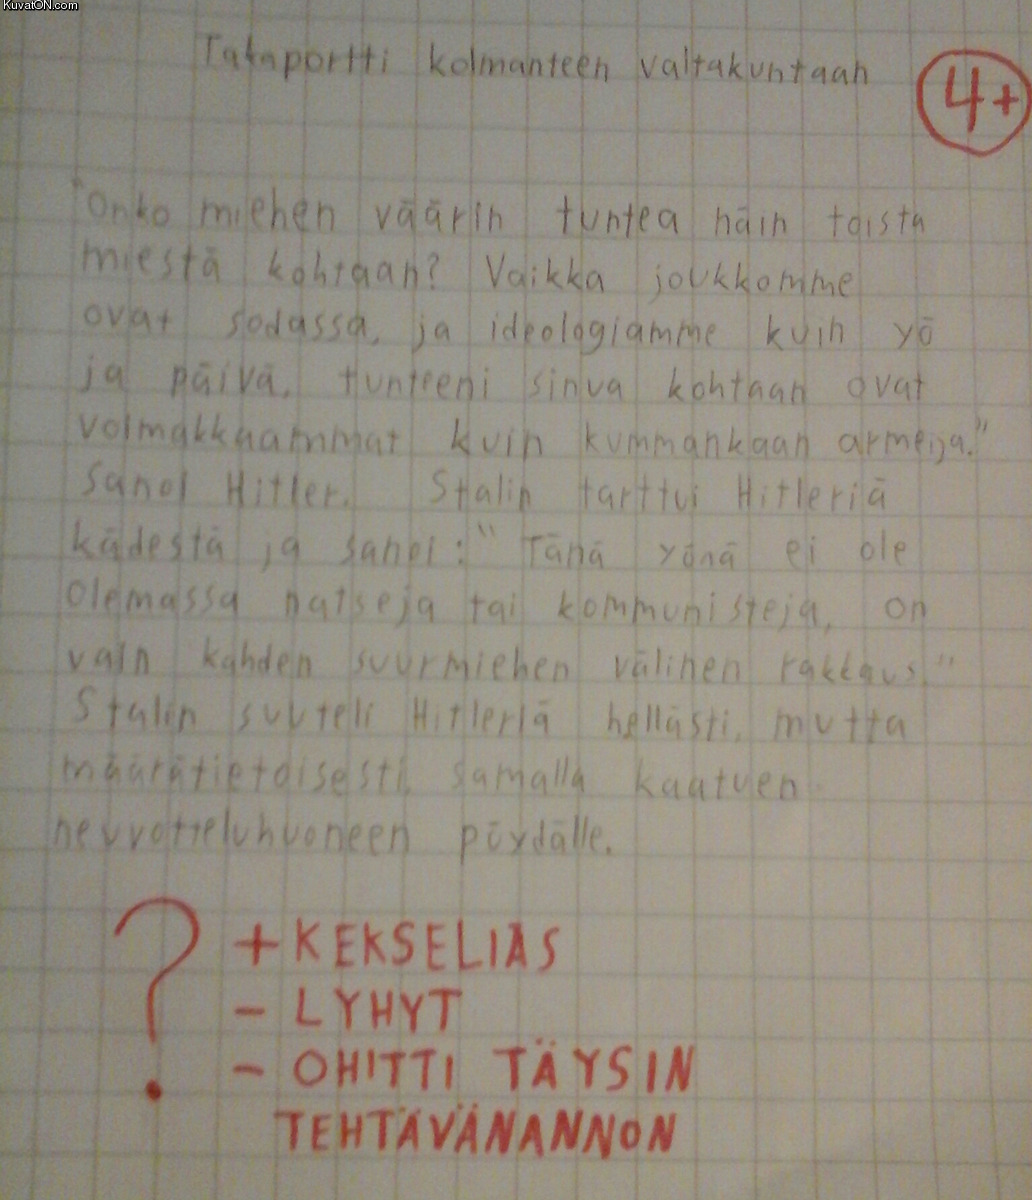 KuvatON.com
Takaportti kolmanteen valtakuntaan
4+
"Onko miehen väärin tuntea näin toista
miestä kohtaan? Vaikka joukkomme
ovat sodassa, ja ideologiamme kuin yö
ja päivä, tunteeni sinua kohtaan ovat
voimakkaammat kuin kummankaan armeija."
Sanoi Hitler. Stalin tarttui Hitleriä
kädestä ja sanoi: "Tänä yönä ei ole
olemassa natseja tai kommunisteja, on
vain kahden suurmiehen välinen rakkaus."
Stalin suuteli Hitleriä hellästi, mutta
määrätietoisesti, samalla kaatuen
neuvotteluhuoneen pöydälle.
? + KEKSELIÄS
- LYHYT
- OHITTI TÄYSIN
TEHTÄVÄNANNON